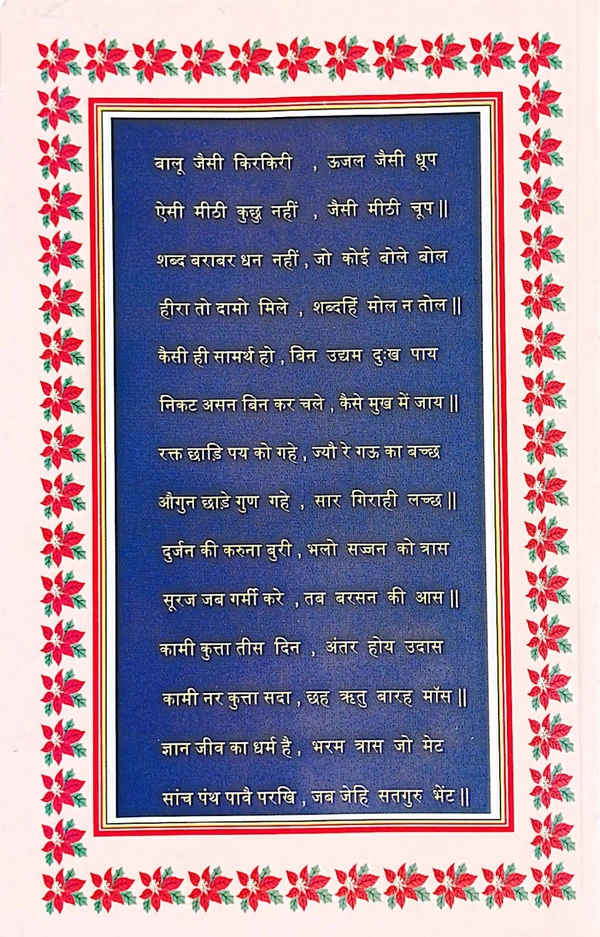 बालू जैसी किरकिरी , ऊजल जैसी धूप
ऐसी मीठी कुछु नहीं , जैसी मीठी चूप ||
शब्द बराबर धन नहीं , जो कोई बोले बोल
हीरा तो दामो मिले , शब्दहिं मोल न तोल ||
कैसी ही सामर्थ हो , बिन उद्यम दुःख पाय
निकट असन बिन कर चले , कैसे मुख में जाय ||
रक्त छाड़ि पय को गहे , ज्यौ रे गऊ का बच्छ
औगुन छाड़े गुण गहे , सार गिराही लच्छ ||
दुर्जन की करुना बुरी , भलो सज्जन को त्रास
सूरज जब गर्मी करे , तब बरसन की आस ||
कामी कुत्ता तीस दिन , अंतर होय उदास
कामी नर कुत्ता सदा , छह ऋतु बारह मॉस ||
ज्ञान जीव का धर्म है , भरम त्रास जो मेट
सांच पंथ पावै परखि , जब जेहि सतगुरु भेंट ||